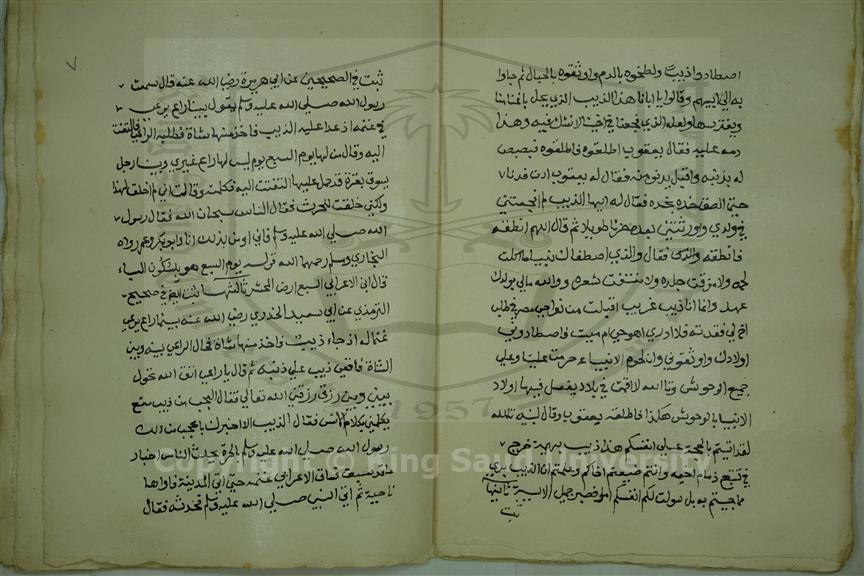 اصطادوا ذيبا ولطخوه بالدم واوثقوه بالحبال ثم جاوا
به الى ابيهم وقالوا يا ابانا هذا الذيب الذي يحل باغنامنا
ويفترسها ولعله الذي فجعنا في اخينا لا نشك فيه وهذا
دمه عليه فقال يعقوب اطلقوه فاطلقوه فبصبص
له بذنبه واقبل يدنو منه فقال له يعقوب ادن فدنا
حتى الصق خده بخده فقال له ايها الذيب لم فجعتني
في ولدي واورثتني بعده حزنا طويلا ثم قال اللهم انطقه
فانطقه والذي فقال والذي اصطفاك نبيا ما اكلت
لحمه ولا مزقت جلده ولا نتفت شعره ووالله مالي بولدك
عهد وانما انا ذيب غريب اقبلت من نواحي مصر في طلب
اخ لي فقدته فلا ادري اهو حي ام ميت فاصطادوني
اولادك واوثقوني وان لحوم الانبياء حرمت علينا وعلى
جميع الوحوش وتالله لا اقمت في بلاد يفعل فيها اولاد
الانبيا بالوحوش هكذا فاطلقه يعقوب وقال لبنيه تالله
لقد اتيتم بالحجة على انفسكم هذا ذيب بهيمة خرج
في تتبع ذمام اخيه وانتم ضيعتم اخاكم وعلمتم ان الذيب بري
مما جيتم به بل سولت لكم انفسكم امرا فصبر جميل الاية ثانيها
ثبت
٧
ثبت في الصحيحين عن ابي هريرة رضي الله عنه قال سمعت
رسول الله صلى الله عليه وسلم يقول بينا راع يرعى
في غنمه اذ عدا عليه الذيب فاخذ منها شاة فطلبه الراعي فالتفت
اليه وقال من لها يوم السبع يوم ليس لها راع غيري وبينا رجل
يسوق بقرة قد حمل عليها التفتت اليه فكلمته وقالت اني لم اخلق لهذا
ولكني خلقت للحرث فقال الناس سبحان الله فقال رسول
الله صلى الله عليه وسلم فاني اومن بذلك انا وابو بكر وعمر رواه
البخاري ومسلم رحمهما الله قوله يوم السبع هو بسكون الباء
قال ابن الاعرابي السبع ارض المحشر ثالثها ثبت ايضا في صحيح
الترمذي عن ابي سعيد الخدري رضي الله عنه بينما راع يرعى
غنما له اذ جاء ذيب فاخذ منها شاة فحال الراعي بينه وبين
الشاة فاقعى ذيب على ذنبه ثم قال يا راعي اتق الله تحول
بيني وبين رزق رزقني الله تعالى فقال العجب من ذيب مقع
يكلمني بكلام الانس فقال الذيب الا اخبرك باعجب من ذلك
رسول الله صلى الله عليه وسلم بالحرة يحدث الناس اخبار
ما قد سبق فساق الاعرابي غنمه حتى اتى المدينة فاواها
ناحية ثم اتى النبي صلى الله عليه وسلم فحدثه فقال
1957
Copyright © King Saud University